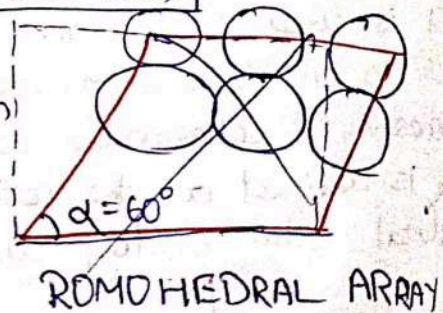 α = 60°
ROMOHEDRAL ARRAY